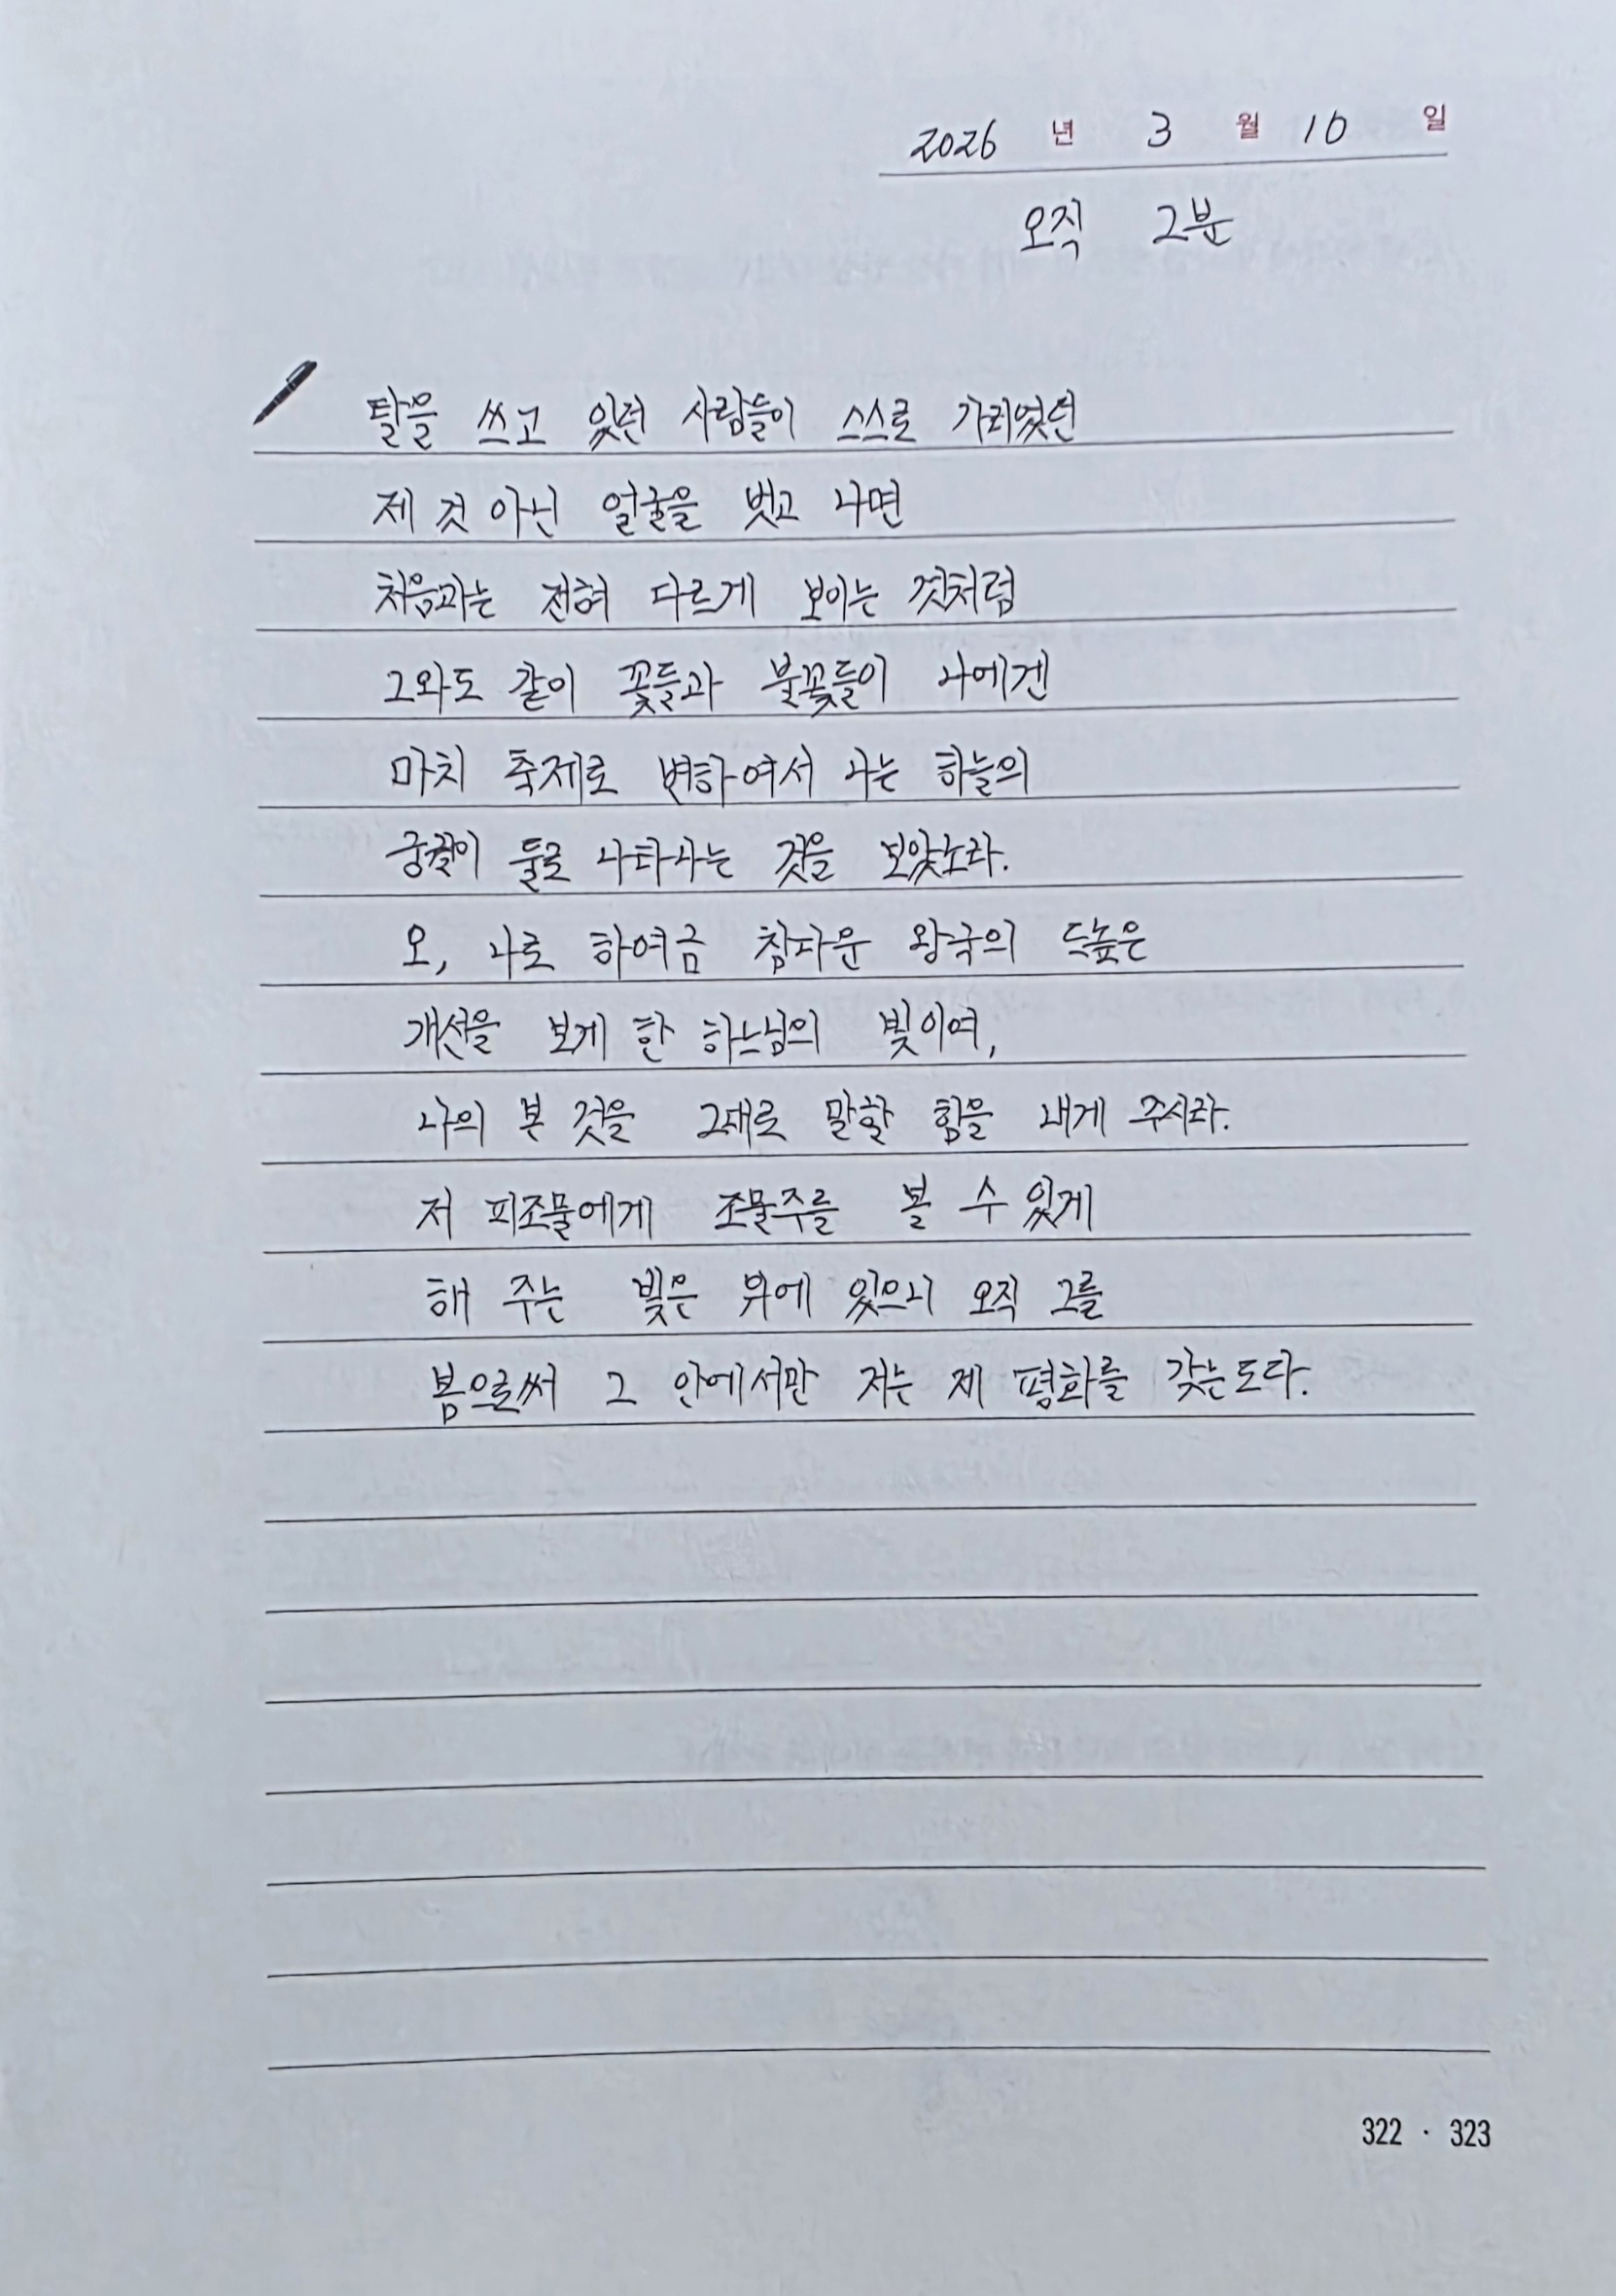 2026 년 3 월 10 일
오직 그분
탈을 쓰고 있던 사람들이 스스로 가리었던
제 것 아닌 얼굴을 벗고 나면
처음과는 전혀 다르게 보이는 것처럼
그와도 같이 꽃들과 불꽃들이 나에겐
마치 축제로 변하여서 나는 하늘의
궁궐이 둘로 나타나는 것을 보았노라.
오, 나로 하여금 참다운 왕국의 드높은
개선을 보게 한 하느님의 빛이여,
나의 본 것을 그대로 말할 힘을 내게 주시라.
저 피조물에게 조물주를 볼 수 있게
해 주는 빛은 위에 있으니 오직 그를
봄으로써 그 안에서만 저는 제 평화를 갖는도다.
322 · 323